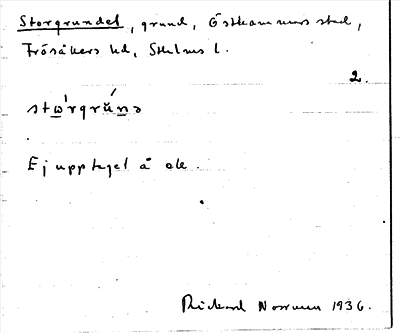 Storgrundet, grund, Östhammars stad,
Frösåkers hd, Sthlms l.
2.
Ej upptaget å ek.
Rickard Norman 1936.